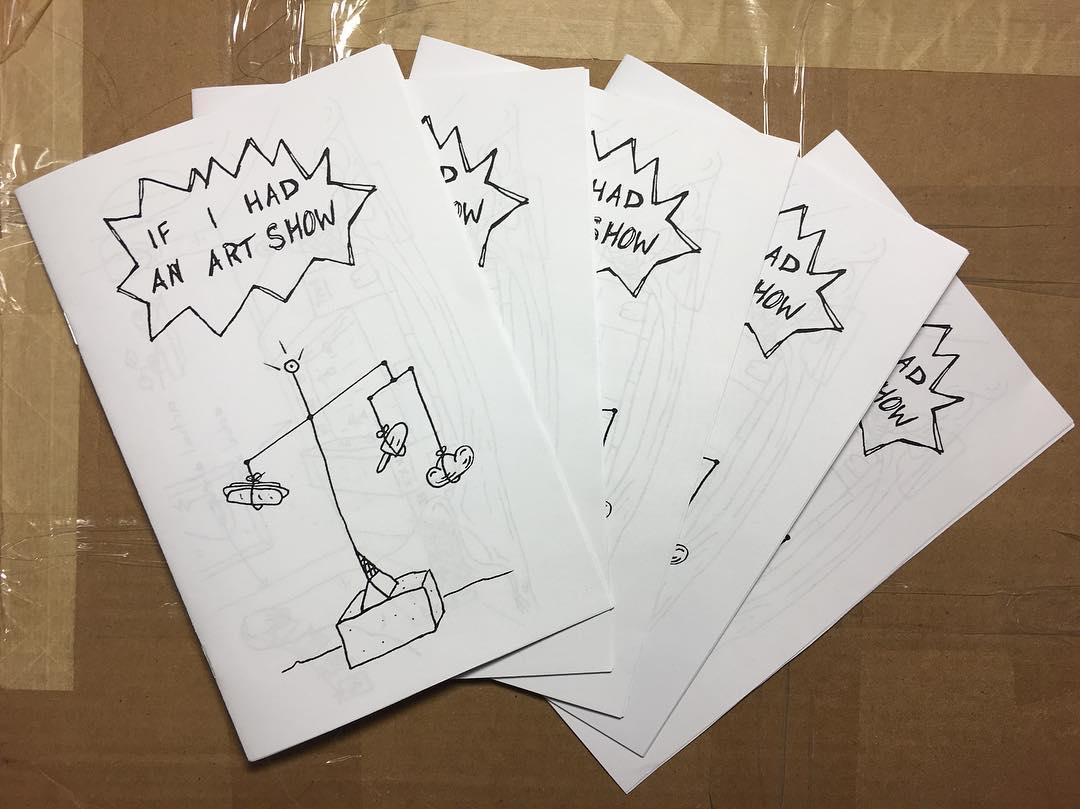 IF I HAD
AN ART SHOW
D
OW
HAD
SHOW
AD
HOW
AD
HOW